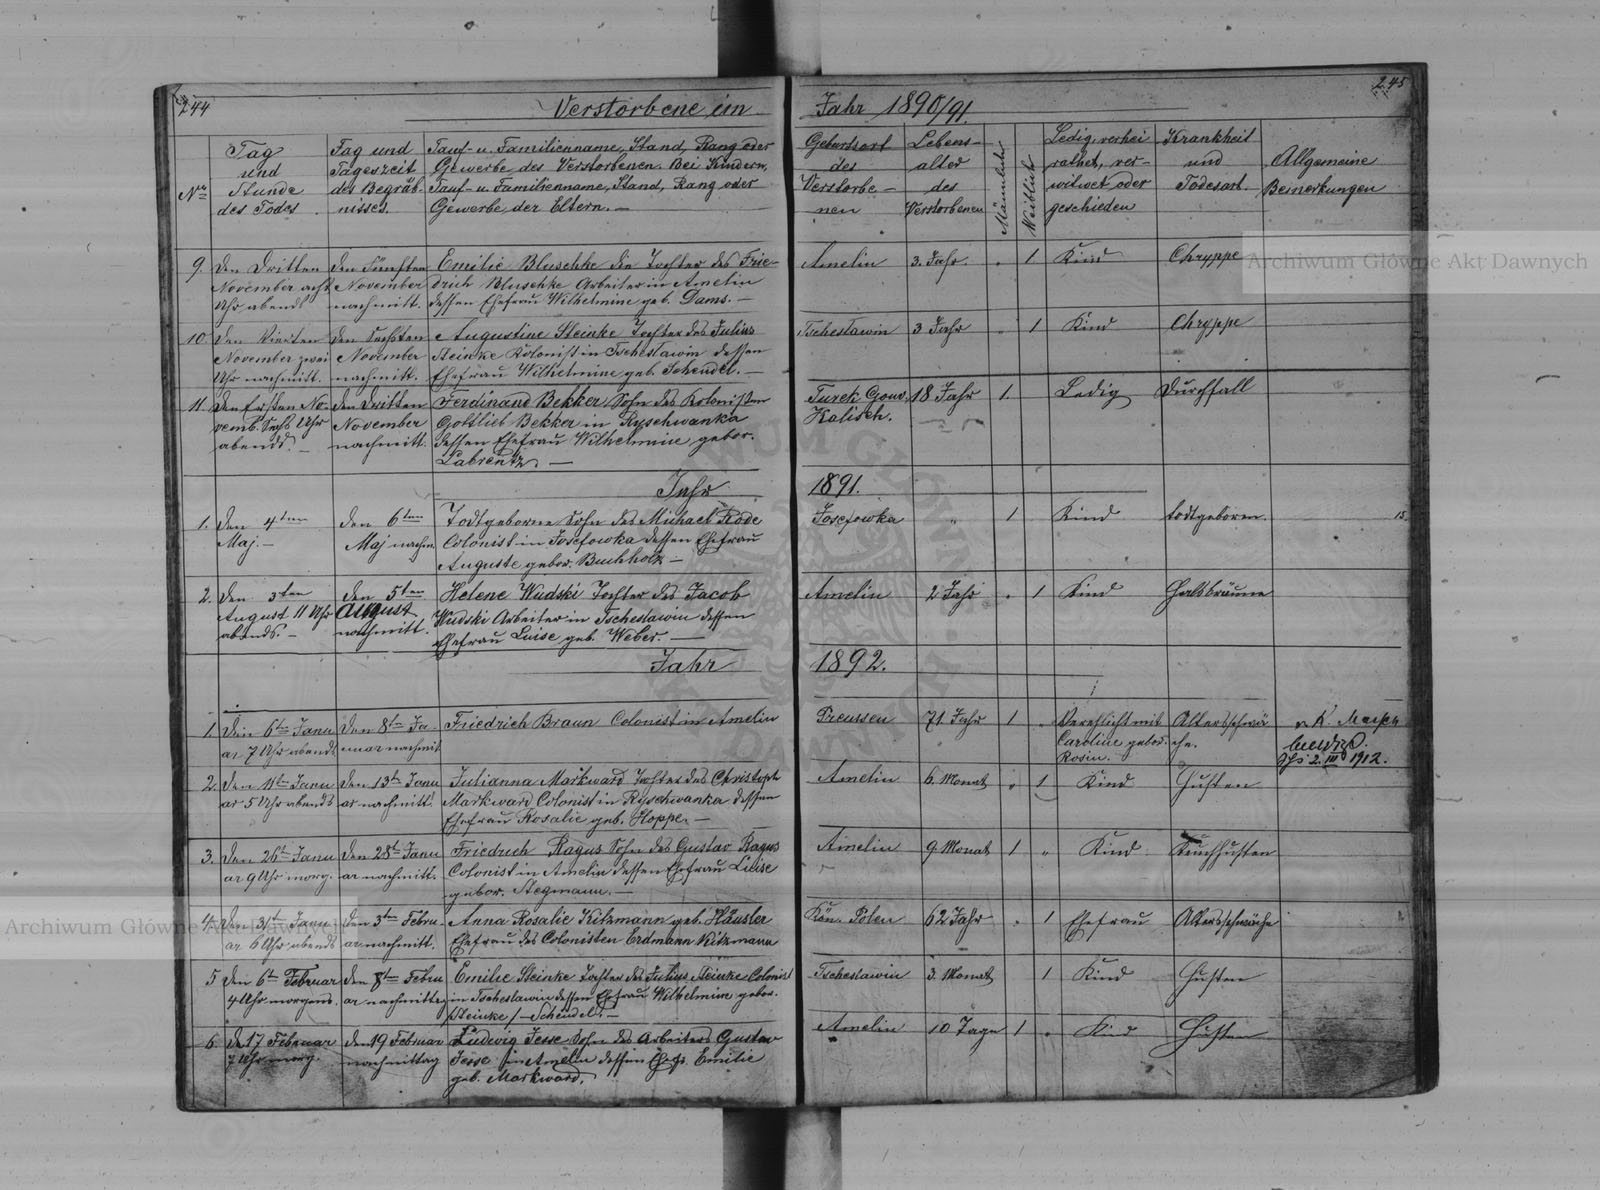 244
Verstorbene im
Nro
Tag
und
Stunde
des Todes
Tag und
Tageszeit
des Begräb-
nisses.
Tauf- u. Familienname, Stand, Rang oder
Gewerbe des Verstorbenen. Bei Kindern,
Tauf- u Familienname, Stand, Rang oder
Gewerbe der Eltern. —
9. Den Dritten
November acht
Uhr abends
den Fünften
November
nachmitt.
Emilie Bluschke die Tochter des Frie-
drich Bluschke Arbeiter in Amelin
dessen Ehefrau Wilhelmine geb. Dams. —
10. Den Vierten
November zwei
Uhr nachmitt.
den Sechsten
November
nachmitt.
Augustine Steinke Tochter des Julius
Steinke Kolonist in Tscheslawin dessen
Ehefrau Wilhelmine geb. Schendel. —
11. Den Ersten No-
vemb. Sechs Uhr
abends. —
den Dritten
November
nachmitt.
Ferdinand Bekker Sohn des Kolonisten
Gottlieb Bekker in Ryschwanka
dessen Ehefrau Wilhelmine gebor.
Labrentz. —
Jahr
1. Den 4ten
Maj. —
den 6ten
Maj nachm
Todtgeborne Sohn des Michael Rode
Colonist in Josefowka dessen Ehefrau
Auguste gebor. Buchholz —
2. Den 3ten
August 11 Uhr
abends. —
den 5ten
August
nachmitt.
Helene Wudski Tochter des Jacob
Wudski Arbeiter in Tscheslawin dessen
Ehefrau Luise geb. Weber. —
Jahr
1. Den 6ten Janu
ar 7 Uhr abends
Den 8ten Ja-
nuar nachmit
Friedrich Braun Colonist in Amelin
2. Den 11ten Janu
ar 5 Uhr abends
Den 13ten Janu
ar nachmitt.
Julianna Markward Tochter des Christoph
Markward Colonist in Ryschwanka dessen
Ehefrau Rosalie geb. Hoppe. —
3. Den 26t Janu
ar 9 Uhr morg.
den 28t Janu
ar nachmitt.
Friedrich Ragus Sohn des Gustav Ragus
Colonist in Amelin dessen Ehefrau Luise
gebor. Stegmann. —
4. Den 31t Janu
ar 6 Uhr abends
den 3ten Febru-
ar nachmitt.
Anna Rosalie Kitzmann geb. Häusler
Ehefrau des Colonisten Erdmann Kitzmann
5 Den 6t Februar
4 Uhr morgens.
den 8ten Febru
ar nachmittag
Emilie Steinke Tochter des Julius Steinke Colonist
in Tscheslawin dessen Ehefrau Wilhelmine gebor.
Steinke /—Schendel. —
6. den 17 Februar
7 Uhr morg.
den 19 Februar
nachmittag
Ludwig Jesse Sohn des Arbeiters Gustav
Jesse in Amelin dessen Ehefr. Emilie
geb. Markward.
245
Jahr 1890/91.
Geburtsort
des
Verstorbe-
nen
Lebens-
alter
des
Verstorbenen
Männliche
Weibliche
Ledig, verhei
rathet, ver-
witwet oder
geschieden
Krankheit
und
Todesart.
Allgemeine
Bemerkungen
Amelin 3. Jahr. „ 1 Kind Chryppe
Tscheslawin 3 Jahr „ 1 Kind Chryppe
Turek Gouv.
Kalisch.
18 Jahr 1. Ledig Durchfall
1891.
Josefowka „ 1 Kind todtgeboren. 15
Amelin 2 Jahr „ 1 Kind Halsbräune
1892.
Preussen 71. Jahr 1 „
Verehlicht mit
Caroline gebor.
Rosin.
Altersschwä
che.
2. III 1912.
Amelin 6. Monat „ 1 Kind Husten
Amelin 9 Monat 1 „ Kind Keuchhusten
Kön. Polen 62 Jahr „ 1 Ehefrau Altersschwäche
Tscheslawin 3. Monat 1 Kind Husten
Amelin 10 Tage 1 „ Kind Husten
Archiwum Główne Akt Dawnych
Archiwum Główne Akt Dawnych